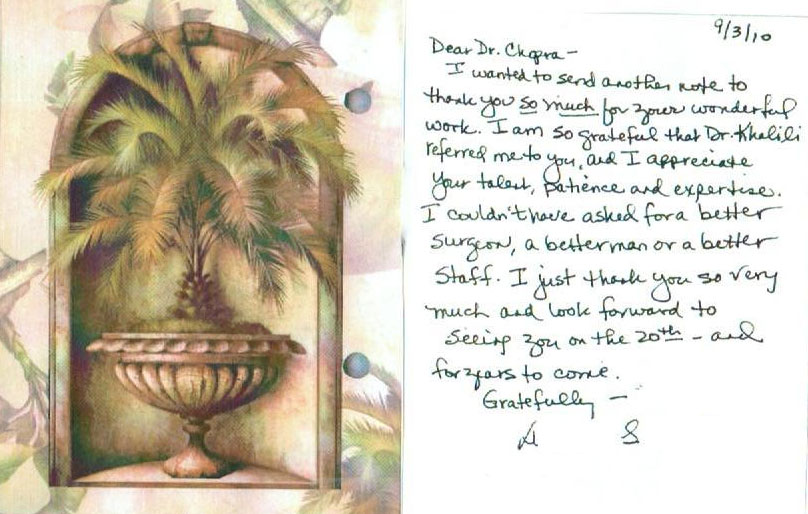 9/3/10
Dear Dr. Chopra -
I wanted to send another note to
thank you so much for your wonderful
work. I am so grateful that Dr. Khalili
referred me to you, and I appreciate
your talent, patience and expertise.
I couldn't have asked for a better
surgeon, a better man or a better
staff. I just thank you so very
much and look forward to
seeing you on the 20th - and
for years to come.
Gratefully -
S